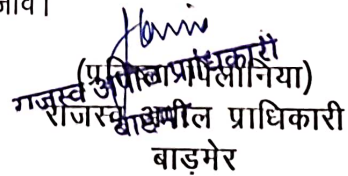 जावे।
(प्रतिभा पिलानिया)
राजस्व अपील प्राधिकारी
बाड़मेर
राजस्व अपील प्राधिकारी
बाडमेर